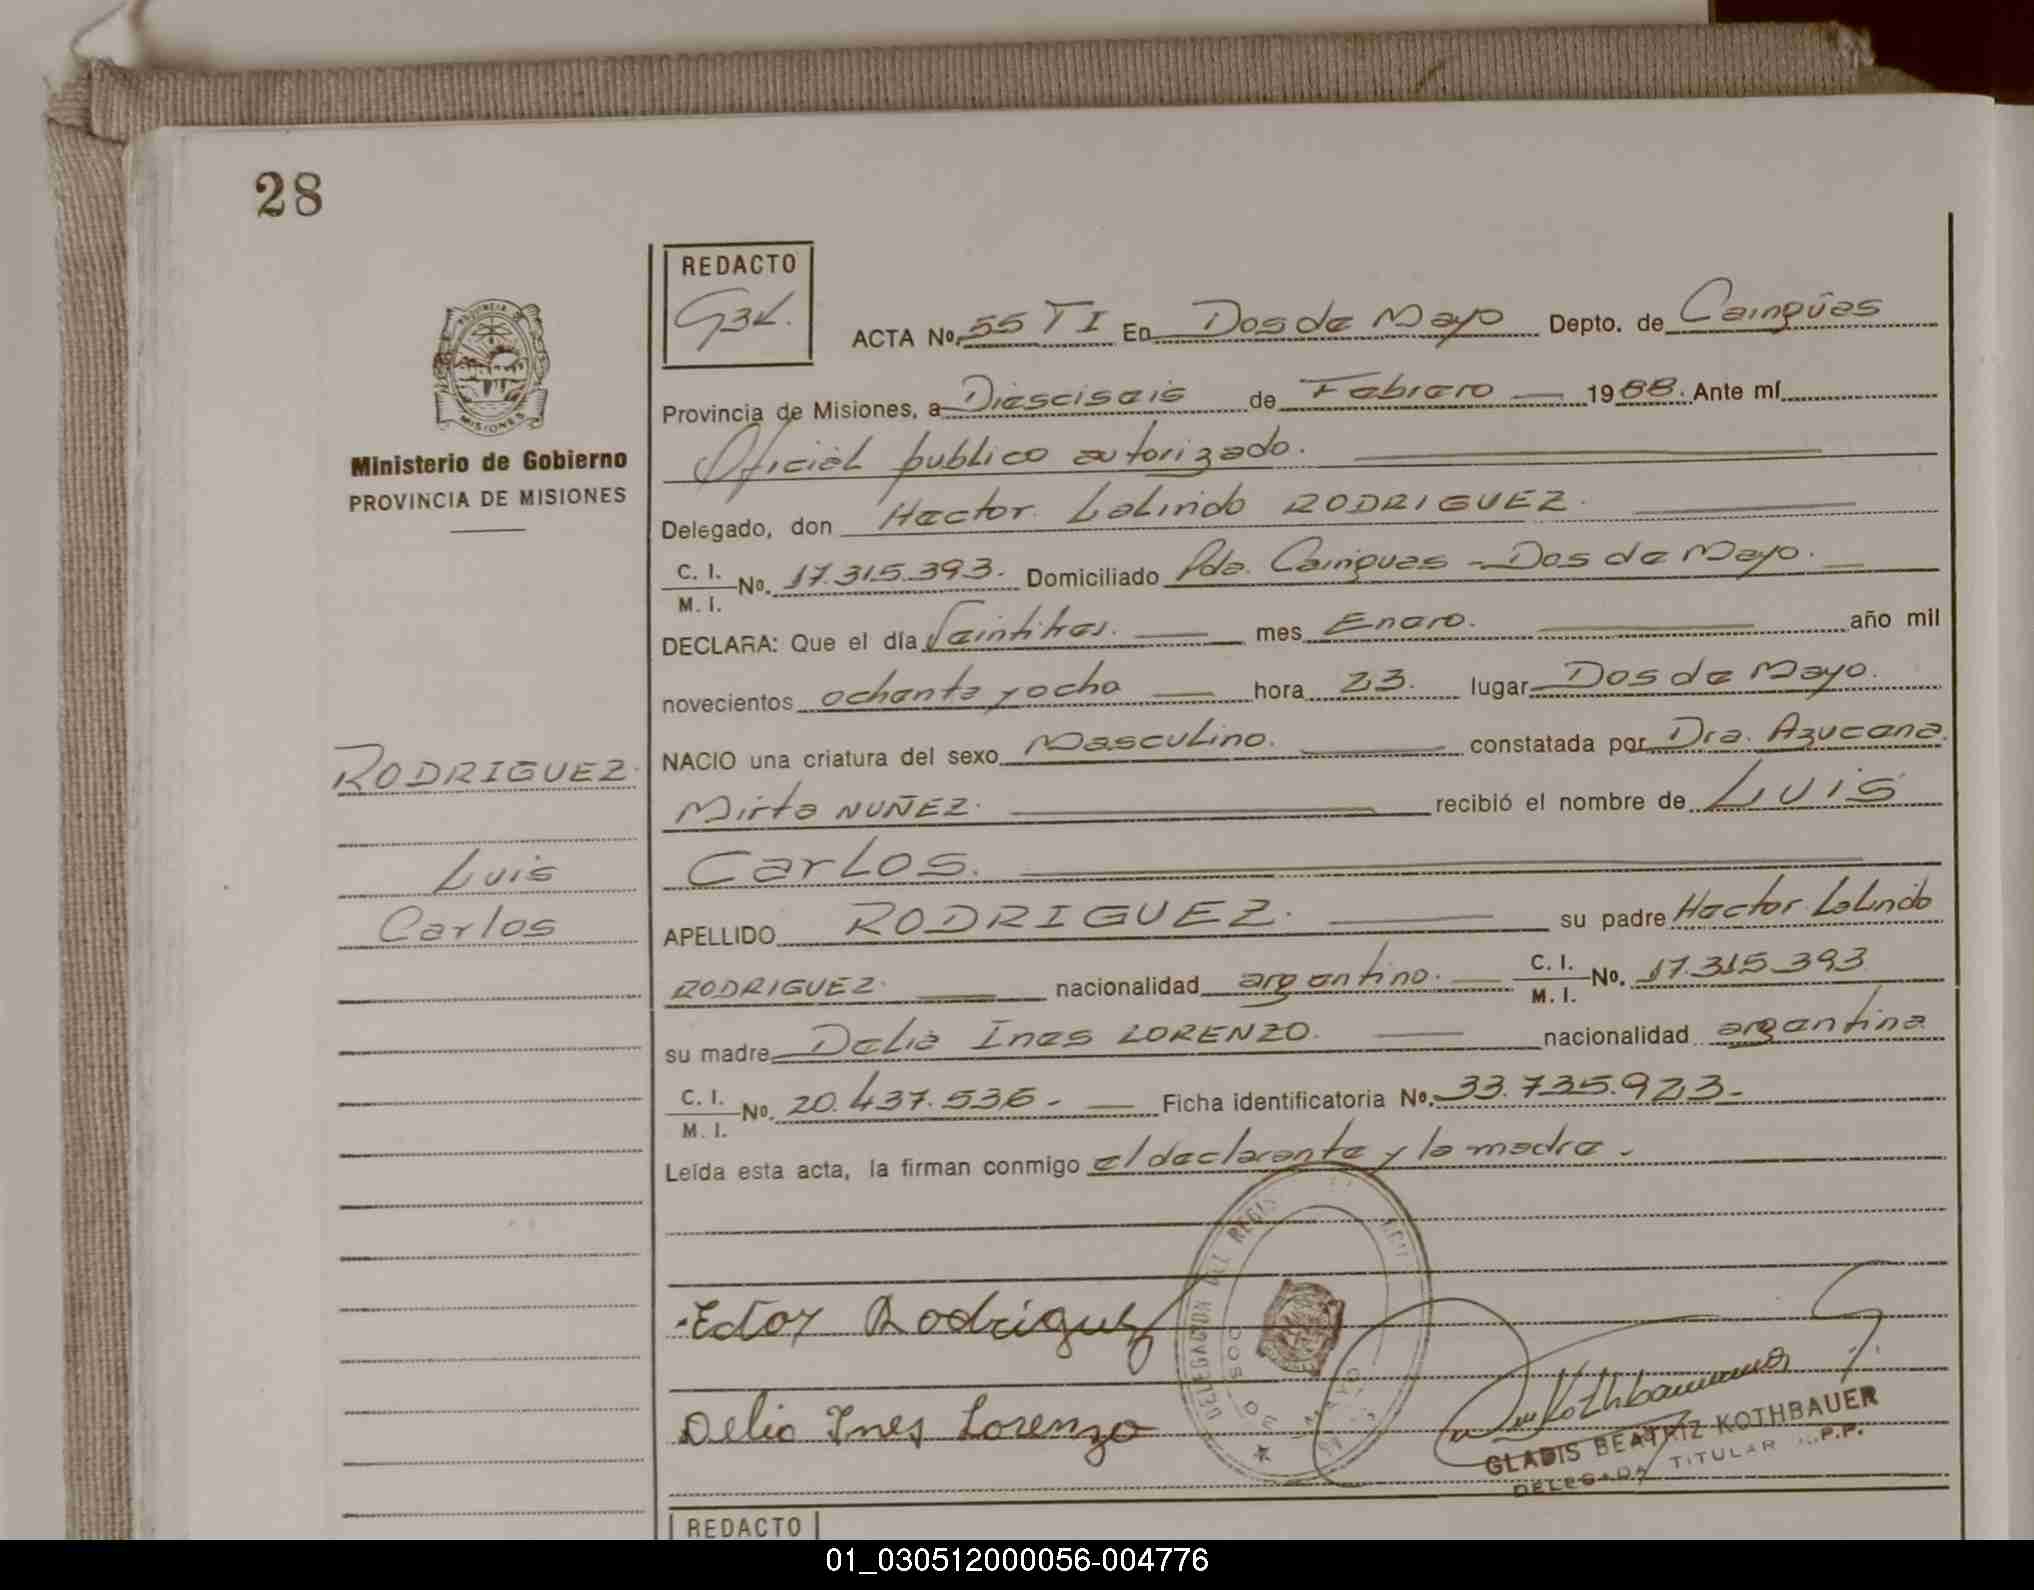 28
REDACTO
GBK.
ACTA No. 55 TI En Dos de Mayo Depto. de Caingúas
PROVINCIA DE MISIONES
Provincia de Misiones, a Diesciseis de Febrero 1988. Ante mí
Oficial publico autorizado.
Ministerio de Gobierno
PROVINCIA DE MISIONES
Delegado, don Hector Lalindo RODRIGUEZ.
C. I.
M. I. No. 17.315.393. Domiciliado Pda. Cainguas - Dos de Mayo.
DECLARA: Que el día Veintitres. mes Enero. año mil
novecientos ochenta y ocho hora 23. lugar Dos de Mayo.
NACIO una criatura del sexo Masculino. constatada por Dra. Azucena
RODRIGUEZ.
Mirta NUÑEZ. recibió el nombre de LUIS
Luis
Carlos
CarLos.
APELLIDO RODRIGUEZ. su padre Hector Lalindo
RODRIGUEZ. nacionalidad argentino. C. I.
M. I. No. 17.315.393
su madre Delia Ines LORENZO. nacionalidad argentina
C. I.
M. I. No. 20.437.536 - Ficha identificatoria No. 33.735.923-
Leída esta acta, la firman conmigo el declarante y la madre.
DELEGACION DEL REGIS
DOS DE
Ector Rodriguez
Delia Ines Lorenzo
Kothbauer
GLADIS BEATRIZ KOTHBAUER
DELEGADA TITULAR P.P.
REDACTO
01_030512000056-004776